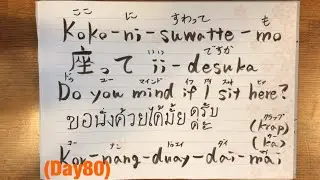 ここ に すわって も
Koko-ni-suwatte-mo
いい ですか
座って ii-desuka
ドゥ ユー マインド イフ アイ スィット ヒア
Do you mind if I sit here?
ขอนั่งด้วยได้มั้ย ครับ (krap)
ค่ะ (ka)
コー ナン ドゥエイ ダイ マイ
Kor-nang-duay-dai-mai
(Day80)